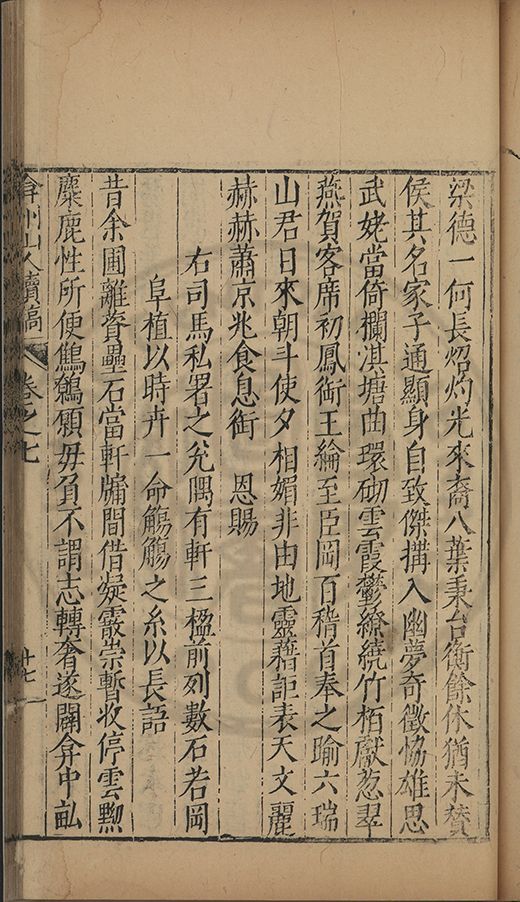 梁德一何長炤灼光來裔八葉秉台衡餘休猶未賛
侯其名家子通顯身自致傑搆入幽夢奇徵恊雄思
武姥當倚攔淇塘曲環砌雲霞鬱繚繞竹栢獻葱翠
燕賀客席初鳳銜王綸至臣岡百稽首奉之瑜六瑞
山君日來朝斗使夕相媚非由地靈藉詎表天文麗
赫赫蕭京兆食息銜　恩賜
右司馬私署之兊隅有軒三楹前列數石若岡
阜植以時卉一命觴觴之糸以長語
昔余圃離薋壘石當軒牗間借凝霰崇暫收停雲勲
麋鹿性所便鷦鷯願毋負不謂志轉奢遂闢弇中畆
弇州山人續稿
卷之七
十七